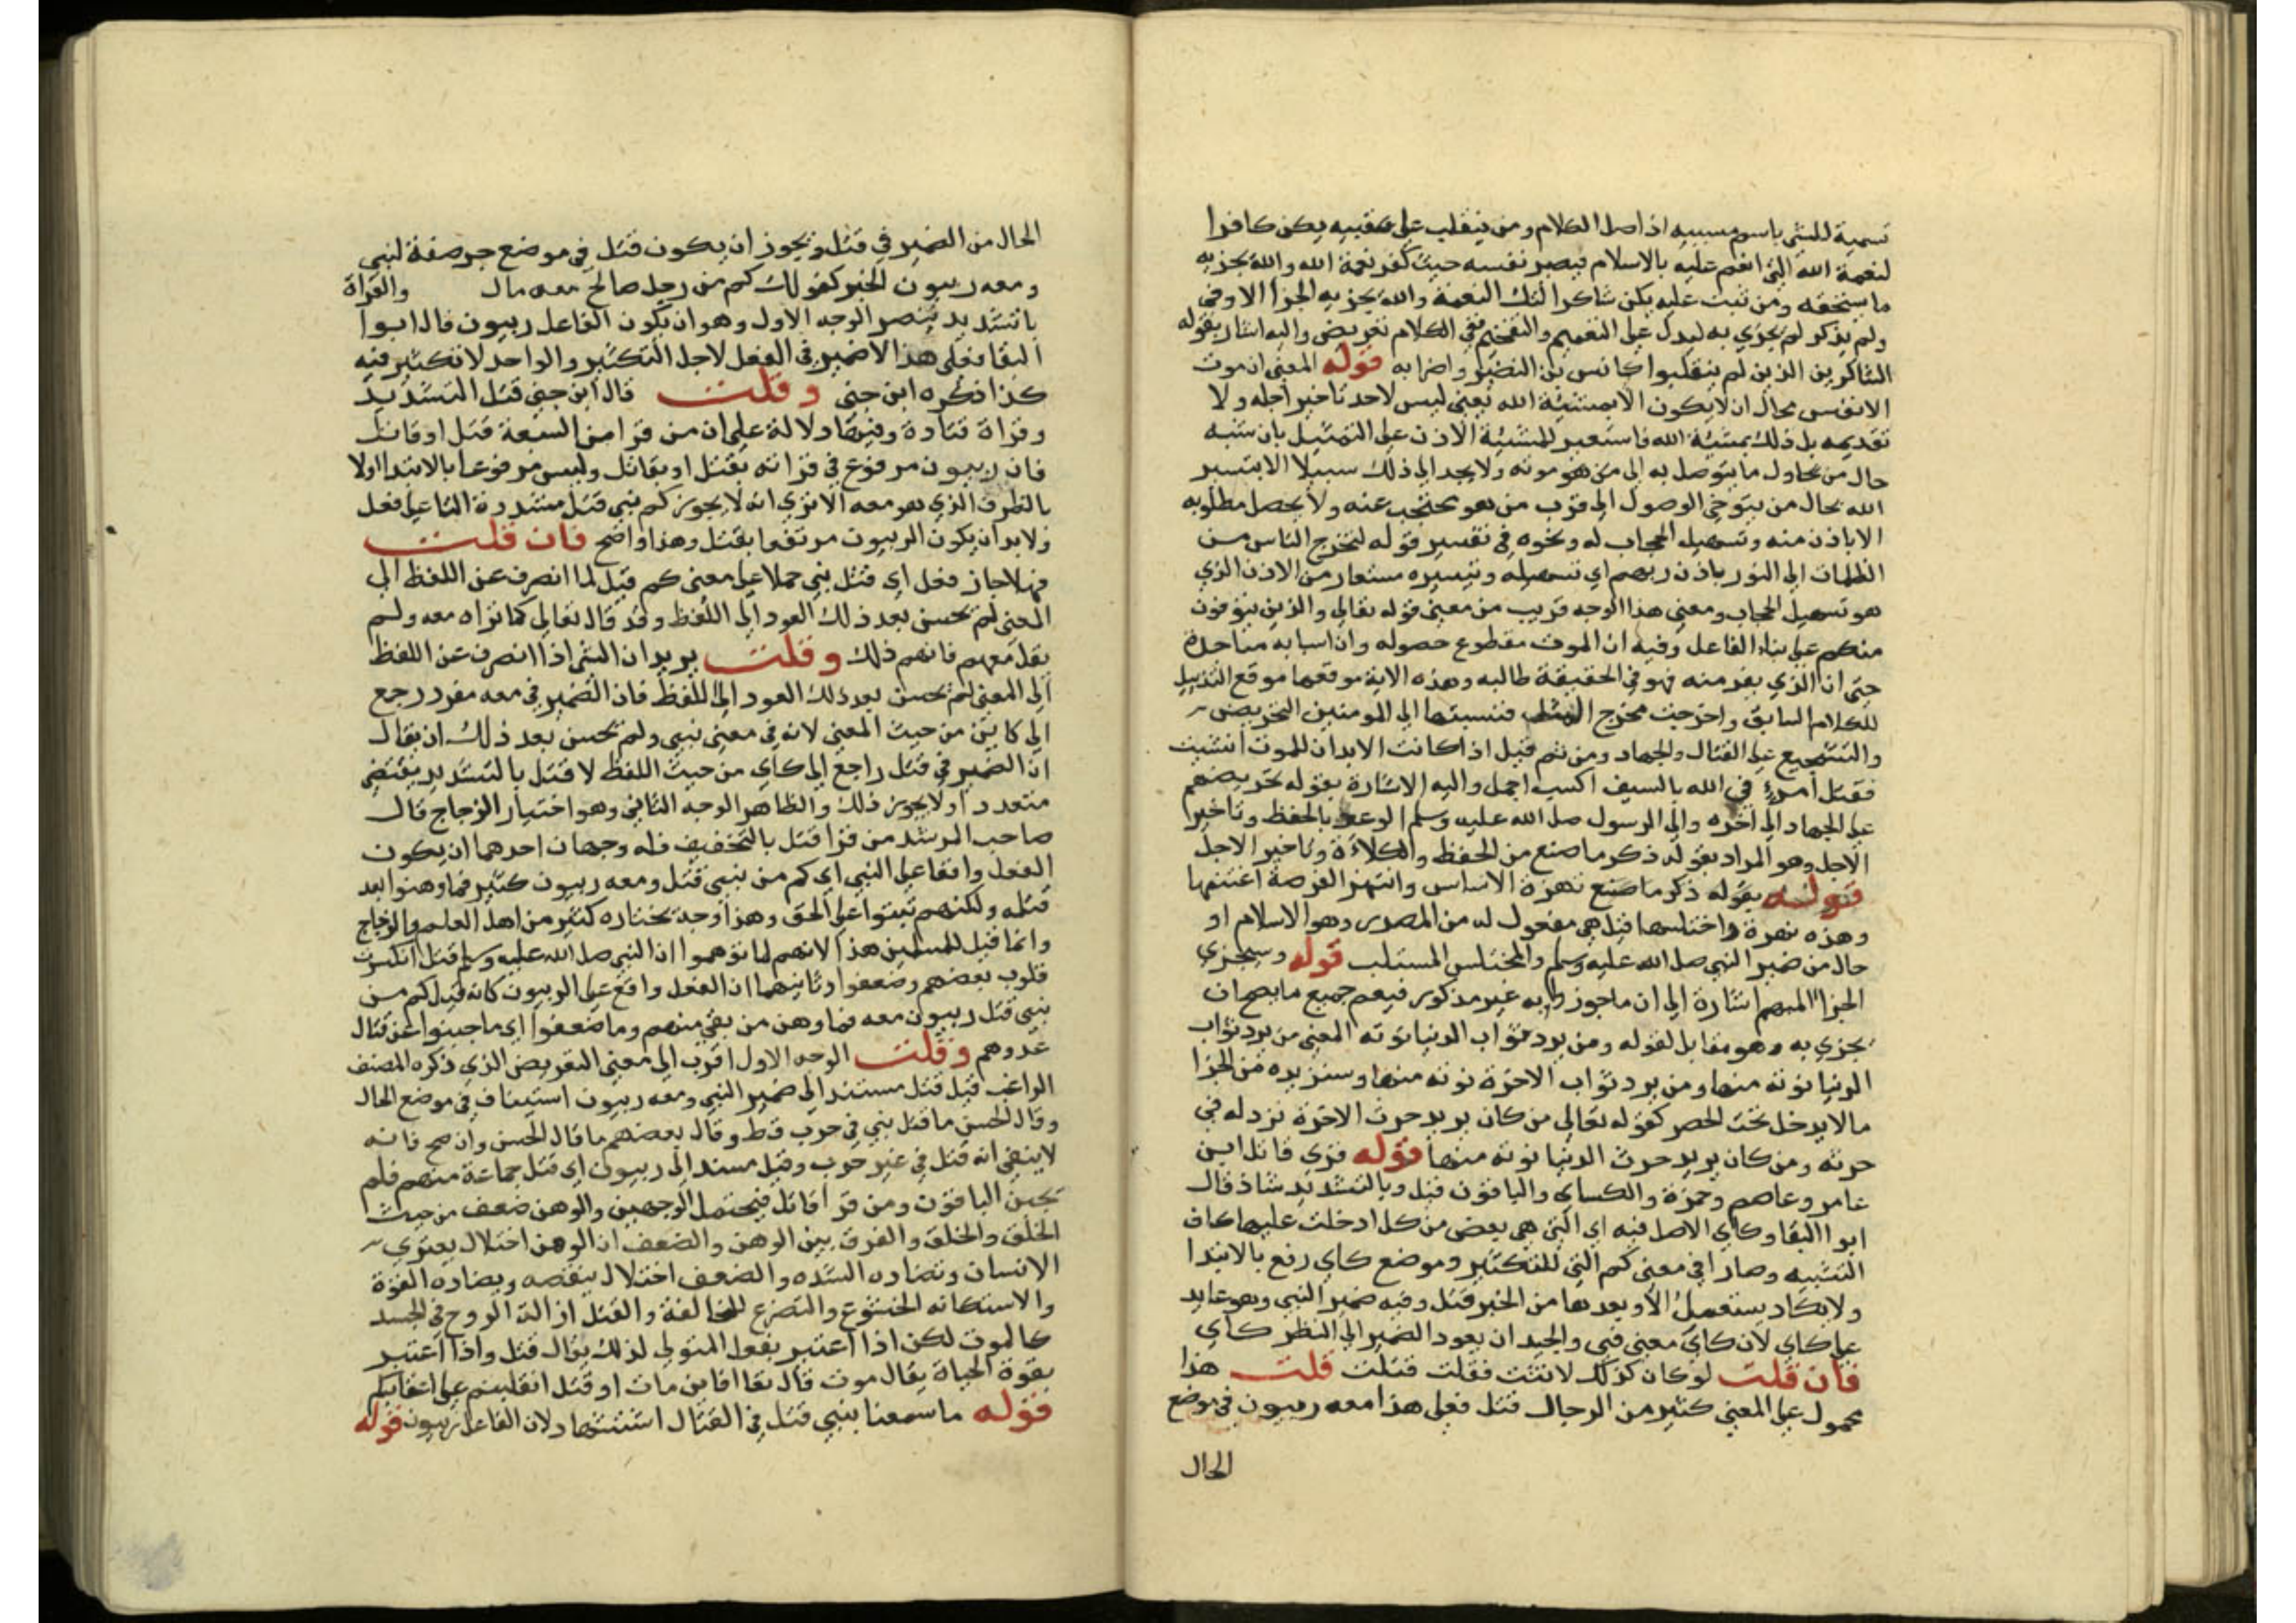 تسمية للشي باسم مسببه اذ اصل الكلام ومن ينقلب على عقبيه يكن كافرا
لنعمة الله التي انعم عليه بالاسلام فيصر نفسه حيث كفر نعمة الله والله يجزيه
ما يستحقه ومن ثبت عليه يكن شاكرا لتلك النعمة والله يجزيه الجزا الاوفى
ولم يذكر لم يجزي به ليدل على التعميم والتفخيم ففي الكلام تعريض واليه اشار بقوله
الشاكرين الذين لم ينقلبوا كانس بن النضير واضرابه قوله المعنى ان موت
الانفس محال ان لا يكون الا بمشيئة الله يعني ليس لاحد تاخير اجله ولا
تقديمه بل ذلك بمشيئة الله فاستعير للمشيئة الاذن على التمثيل بان شبه
حال من يحاول ما يتوصل به الى من هو موته ولا يجد الى ذلك سبيلا الا بتيسير
الله بحال من يتوخى الوصول الى قرب من هو محتجب عنه ولا يحصل مطلوبه
الا باذن منه وتسهيل الحجاب له ونحوه في تفسير قوله لتخرج الناس من
الظلمات الى النور باذن ربهم اي تسهيله وتيسيره مستعار من الاذن الذي
هو تسهيل الحجاب ومعنى هذا الوجه قريب من معنى قوله تعالى والذين يتوفون
منكم على بناء الفاعل وفيه ان الموت مقطوع حصوله وان اسبابه متاخدة
حتى ان الذي يفر منه فهو في الحقيقة طالبه وهذه الاية موقعها موقع التذييل
للكلام السابق واخرجت مخرج المثل فنسبتها الى المومنين التحريض
والتشجيع على القتال والجهاد ومن ثم قيل اذا كانت الابدان للموت انشيت
فقتل امرء في الله بالسيف اكسب اجمل واليه الاشارة بقوله تحريضهم
على الجهاد الى اخره والى الرسول صلى الله عليه وسلم الوعد بالحفظ وتاخير
الاجل وهو المراد بقوله ذكر ما صنع من الحفظ والكلاءة وتاخير الاجل
قوله بقوله ذكر ما صنع نهزة الاساس وانتهز الفرصة اغتنمها
وهذه نهزة واختلسها قيل هي مفعول له من المصدر وهو الاسلام او
حال من ضمير النبي صلى الله عليه وسلم والمختلس المستلب قوله وسيجزي
الجزا المبهم اشارة الى ان ما جوز وا به غير مذكور فيعم جميع ما يصح ان
يجزي به وهو مقابل لقوله ومن يرد ثواب الدنيا نوته المعنى من يرد ثواب
الدنيا نوته منها ومن يرد ثواب الاخرة نوته منها وسنزيده من الجزا
ما لا يدخل تحت الحصر كقوله تعالى من كان يريد حرث الاخرة نزد له في
حرثه ومن كان يريد حرث الدنيا نوته منها قوله قري قاتل ابن
عامر وعاصم وحمزة والكساي والباقون قتل وبالتشديد شاذ قال
ابو البقا وكاي الاصل فيه اي التي هي بعض من كل ادخلت عليها كاف
التشبيه وصارا في معنى كم التي للتكثير وموضع كاي رفع بالابتدا
ولا يكاد يستعمل الا وبعدها من الخبر قتل وفيه ضمير النبي وهو عايد
على كاي لان كاي معنى نبي والجيد ان يعود الضمير الى النظر كاي
فان قلت لو كان كذلك لانثت فقلت قتلت قلت هذا
محمول على المعنى كثير من الرجال قتل فعلى هذا معه ربيون في موضع
الحال
الحال من الضمير في قتل ويجوز ان يكون قتل في موضع جر صفة لنبي
ومعه ربيون الخبر كقولك كم من رجل صالح معه مال والقراة
بالتشديد ينصر الوجه الاول وهو ان يكون الفاعل ربيون قال ابوا
البقا فعلى هذا لا ضمير في الفعل لاجل التكثير والواحد لا تكثير فيه
كذا ذكره ابن جني وقلت قال ابن جني قتل التشديد
وقراة قتادة وفيها دلالة على ان من قرا من السبعة قتل او قاتل
فان ربيون مرفوع في قراته بقتل او بقاتل وليس مرفوعا بالابتدا اولا
بالظرف الذي هو معه الا ترى انه لا يجوز كم نبي قتل مشددة التا على فعل
ولا بد ان يكون الربيون مرتفعا بقتل وهذا واضح فان قلت
فهلا جاز فعل اي قتل نبي حملا على معنى كم قيل لما انصرف عن اللفظ الى
المعنى لم يحسن بعد ذلك العود الى اللفظ وقد قال تعالى كما تراه معه ولم
يقل معهم فافهم ذلك وقلت يريد ان الشي اذا انصرف عن اللفظ
الى المعنى لم يحسن بعد ذلك العود الى اللفظ فان الضمير في معه مفرد رجع
الى كاين من حيث المعنى لانه في معنى نبي ولم يحسن بعد ذلك ان يقال
ان الضمير في قتل راجع الى كاي من حيث اللفظ لا قتل بالتشديد يقتضي
متعددا ولا يجوز ذلك والظاهر الوجه الثاني وهو اختيار الزجاج قال
صاحب المرشد من قرا قتل بالتخفيف فله وجهان احدهما ان يكون
الفعل واقعا على النبي اي كم من نبي قتل ومعه ربيون كثير فما وهنوا بعد
قتله ولكنهم ثبتوا على الحق وهذا وجه يختاره كثير من اهل العلم والزجاج
وانما قيل للمسلمين هذا لانهم لما توهموا ان النبي صلى الله عليه وسلم قتل انكسرت
قلوب بعضهم وضعفوا وثانيهما ان الفعل واقع على الربيون كانه قيل كم من
نبي قتل ربيون معه فما وهن من بقي منهم وما ضعفوا اي ما جبنوا عن قتال
عدوهم وقلت الوجه الاول اقرب الى معنى التعريض الذي ذكره المصنف
الراغب قيل قتل مستند الى ضمير النبي ومعه ربيون استيناف في موضع الحال
وقال الحسن ما قتل نبي في حرب قط وقال بعضهم ما قال الحسن وان صح فانه
لا ينفي انه قتل في غير حرب وقيل مسند الى ربيون اي قتل جماعة منهم فلم
يجبن الباقون ومن قرا قاتل فيحتمل الوجهين والوهن ضعف من حيث
الخلق والخلق والفرق بين الوهن والضعف ان الوهن اختلال يعتري
الانسان وتضاده الشده والضعف اختلال ينقصه ويضاده القوة
والاستكانه الخشوع والتضرع للمخالفة والقتل ازالة الروح في الجسد
كالموت لكن اذا اعتبر بفعل المتولي لذلك يقال قتل واذا اعتبر
بقوة الحياة يقال موت قال تعا افاين مات او قتل انقلبتم على اعقابكم
قوله ما سمعنا بنبي قتل في القتال استشهاد لان الفاعل ربيون قوله